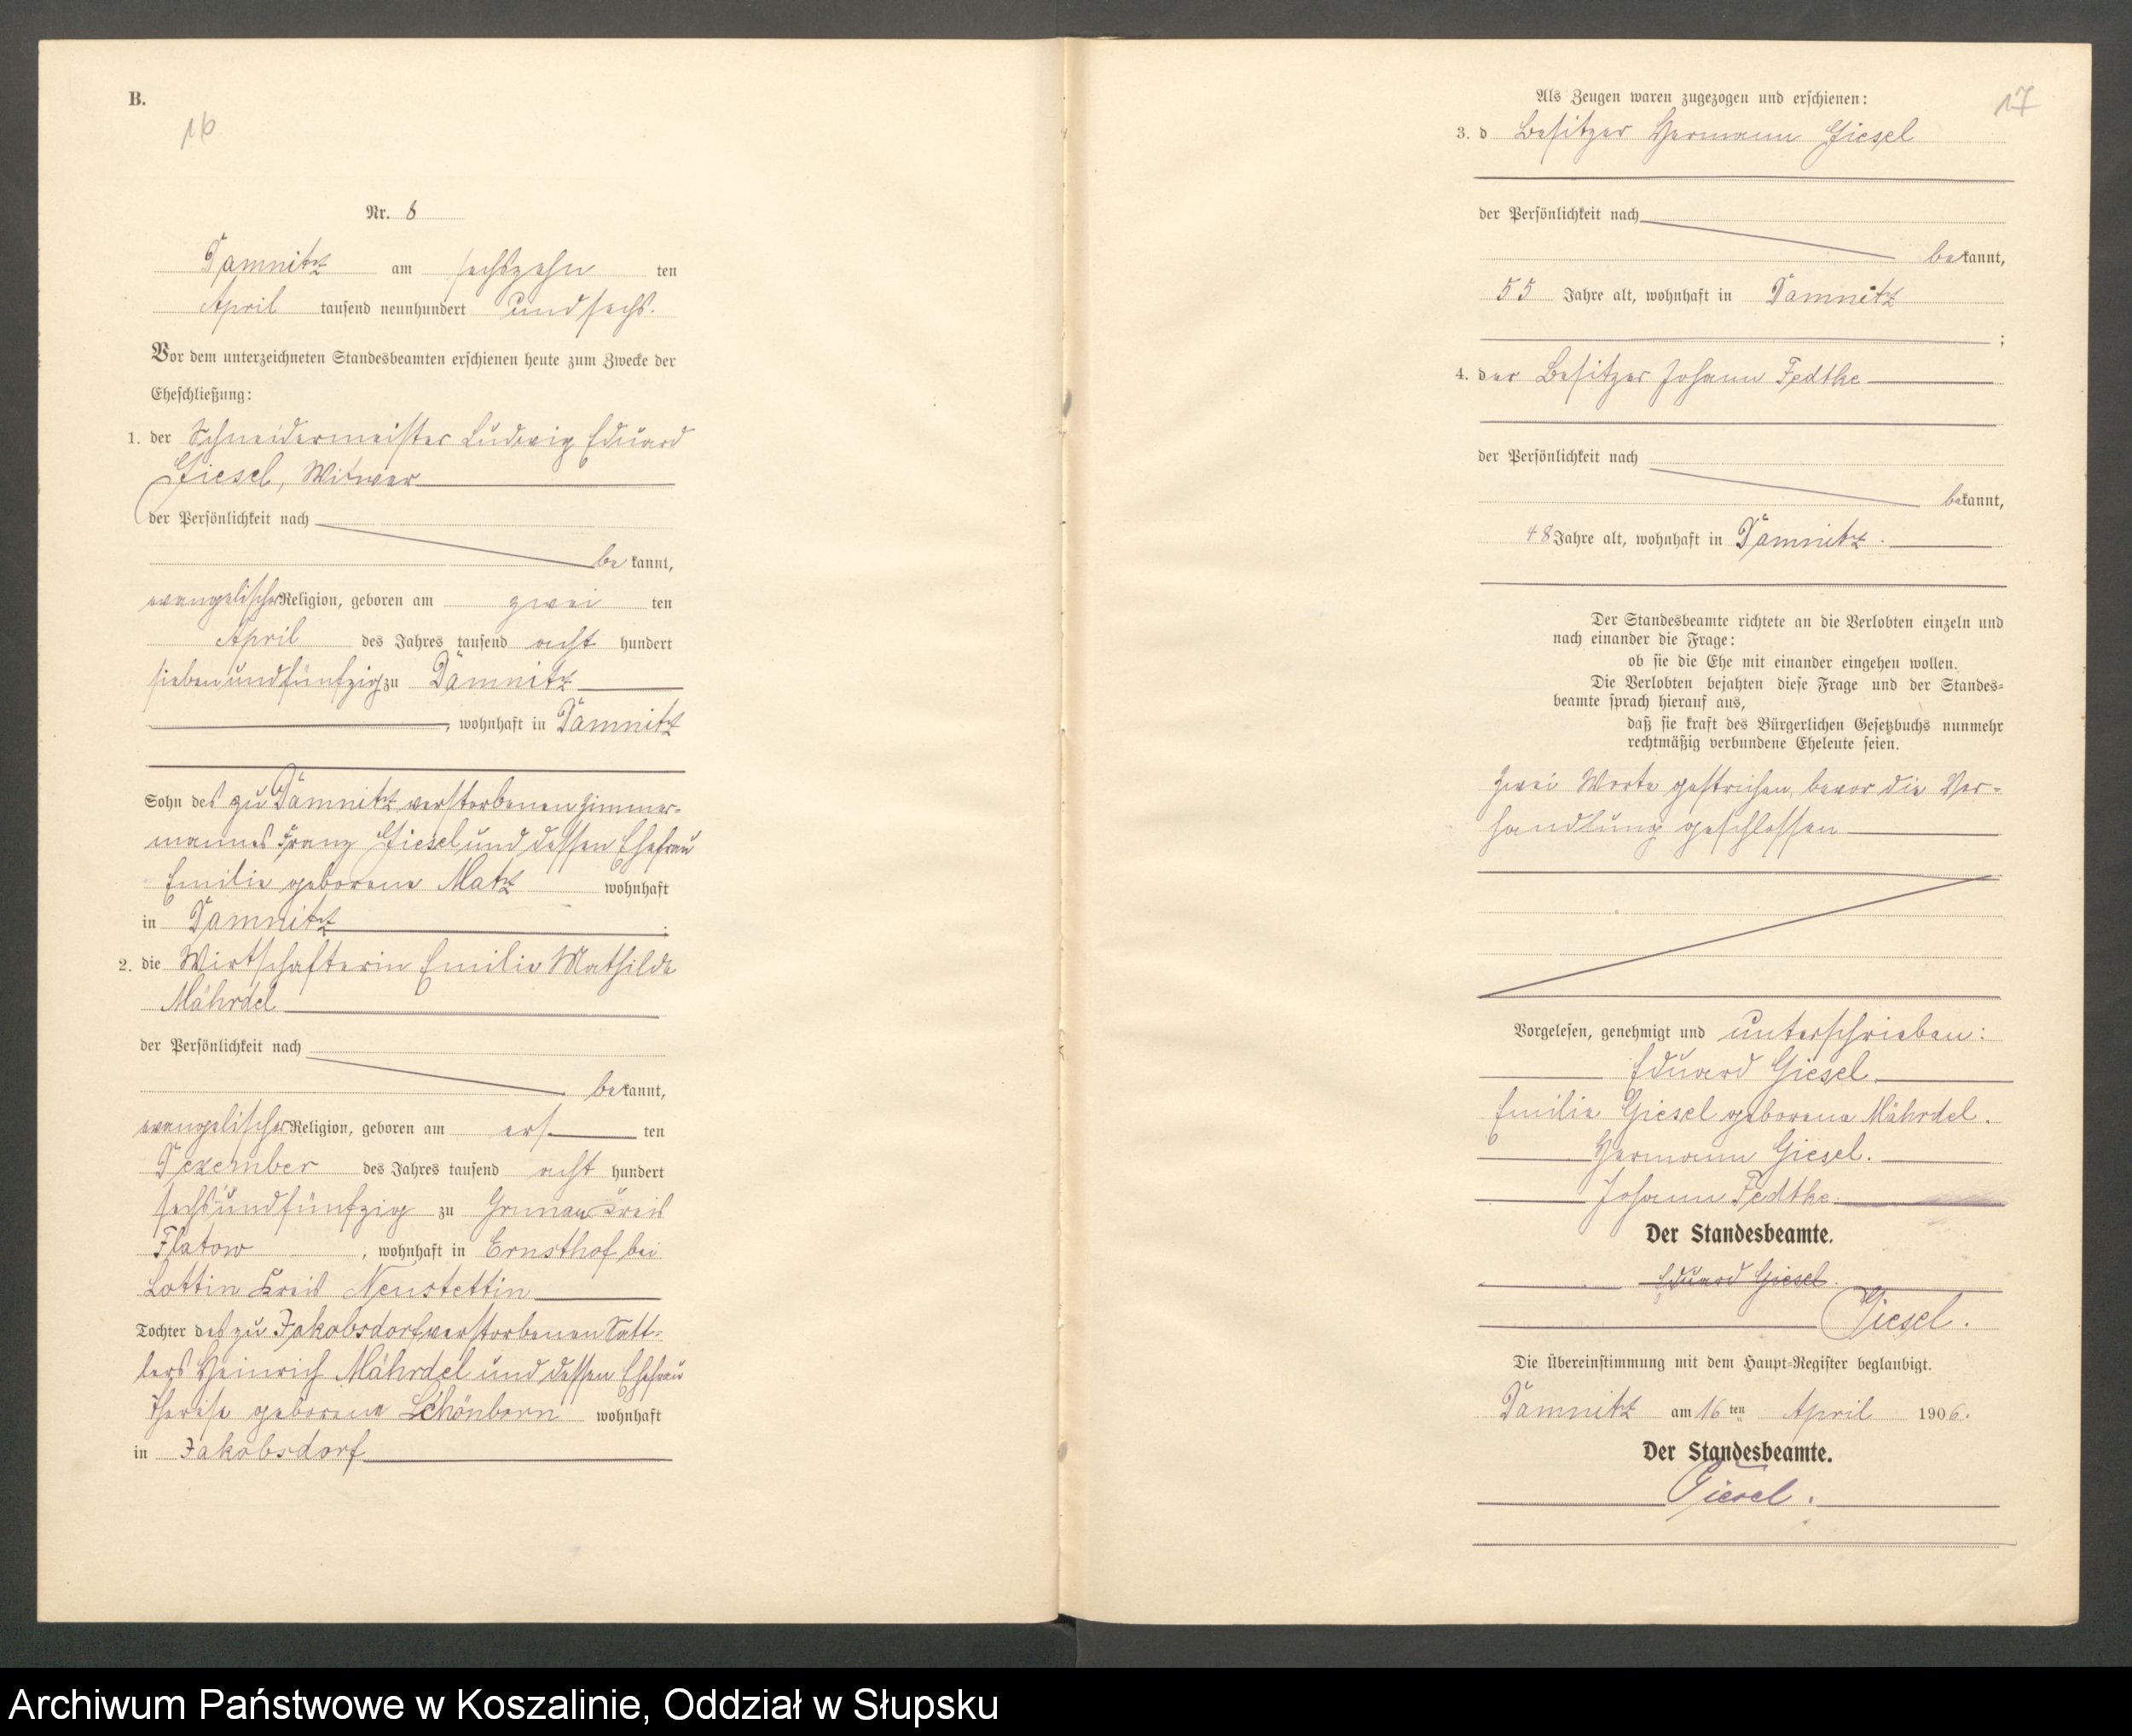 B.
16
Nr. 8
Damnitz am sechszehn ten
April tausend neunhundert und sechs.
Vor dem unterzeichneten Standesbeamten erschienen heute zum Zwecke der
Eheschließung:
1. der Schneidermeister Ludwig Eduard
Giesel, Witwer
der Persönlichkeit nach
be kannt,
evangelischer Religion, geboren am zwei ten
April des Jahres tausend acht hundert
sieben und fünfzig zu Damnitz
, wohnhaft in Damnitz
Sohn des zu Damnitz verstorbenen Zimmer-
mannes Franz Giesel und dessen Ehefrau
Emilie geborene Matz wohnhaft
in Damnitz .
2. die Wirtschafterin Emilie Mathilde
Mährdel
der Persönlichkeit nach
bekannt,
evangelischer Religion, geboren am ers ten
Dezember des Jahres tausend acht hundert
sechs und fünfzig zu Grunau Kreis
Flatow ; wohnhaft in Ernsthof bei
Lottin Kreis Neustettin
Tochter des zu Jakobsdorf verstorbenen Satt-
lers Heinrich Mährdel und dessen Ehefrau
Therese geborene Schönborn wohnhaft
in Jakobsdorf
17
Als Zeugen waren zugezogen und erschienen:
3. d Besitzer Hermann Giesel
der Persönlichkeit nach
bekannt,
55 Jahre alt, wohnhaft in Damnitz
;
4. der Besitzer Johann Fedtke
der Persönlichkeit nach
bekannt,
48 Jahre alt, wohnhaft in Damnitz .
Der Standesbeamte richtete an die Verlobten einzeln und
nach einander die Frage:
ob sie die Ehe mit einander eingehen wollen.
Die Verlobten bejahten diese Frage und der Standes-
beamte sprach hierauf aus,
daß sie kraft des Bürgerlichen Gesetzbuchs nunmehr
rechtmäßig verbundene Eheleute seien.
Zwei Worte gestrichen, bevor die Ver-
handlung geschlossen
Vorgelesen, genehmigt und unterschrieben:
Eduard Giesel
Emilie Giesel geborene Mährdel.
Hermann Giesel.
Johann Fedtke.
Der Standesbeamte.
Eduard Giesel.
Giesel.
Die Übereinstimmung mit dem Haupt-Register beglaubigt.
Damnitz am 16 ten April 1906.
Der Standesbeamte.
Giesel.
Archiwum Państwowe w Koszalinie, Oddział w Słupsku